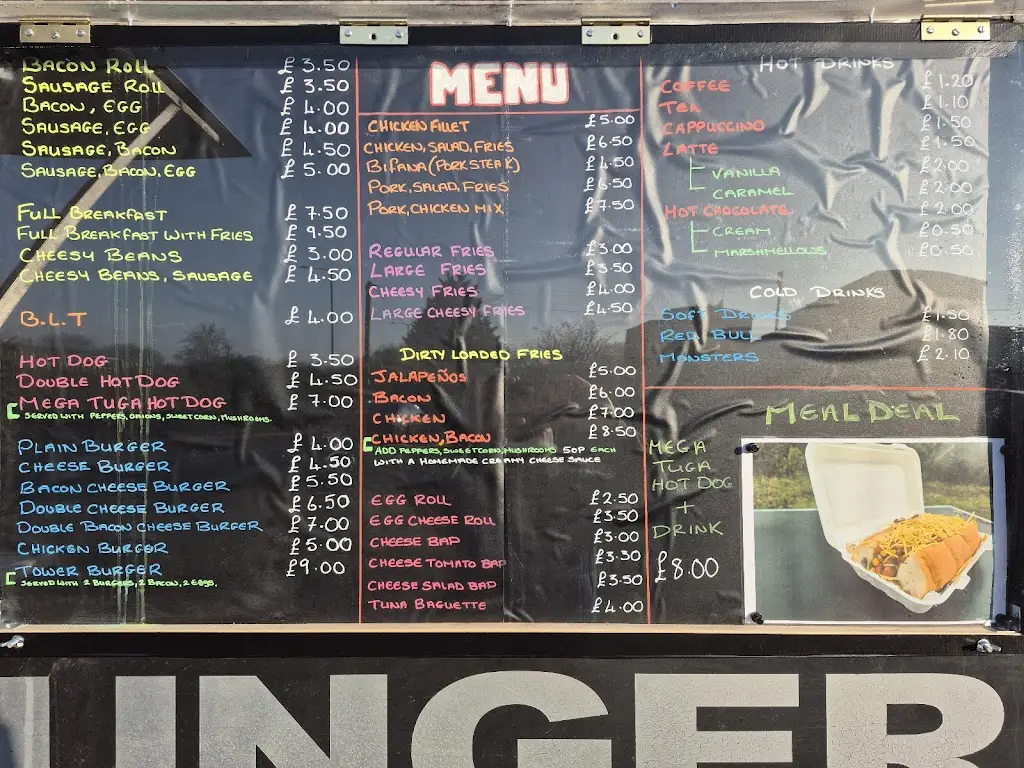 BACON ROLL £ 3.50
SAUSAGE ROLL £ 3.50
BACON, EGG £ 4.00
SAUSAGE, EGG £ 4.00
SAUSAGE, BACON £ 4.50
SAUSAGE, BACON, EGG £ 5.00
FULL BREAKFAST £ 7.50
FULL BREAKFAST WITH FRIES £ 9.50
CHEESY BEANS £ 3.00
CHEESY BEANS, SAUSAGE £ 4.50
B.L.T £ 4.00
HOT DOG £ 3.50
DOUBLE HOT DOG £ 4.50
MEGA TUGA HOT DOG £ 7.00
SERVED WITH PEPPERS, ONIONS, SWEETCORN, MUSHROOMS.
PLAIN BURGER £ 4.00
CHEESE BURGER £ 4.50
BACON CHEESE BURGER £ 5.50
DOUBLE CHEESE BURGER £ 6.50
DOUBLE BACON CHEESE BURGER £ 7.00
CHICKEN BURGER £ 5.00
TOWER BURGER £9.00
SERVED WITH 2 BURGERS, 2 BACON, 2 EGGS.
MENU
CHICKEN FILLET £5.00
CHICKEN, SALAD, FRIES £6.50
BIFANA (PORK STEAK) £4.50
PORK, SALAD, FRIES £6.50
PORK, CHICKEN MIX £7.50
REGULAR FRIES £3.00
LARGE FRIES £3.50
CHEESY FRIES £4.00
LARGE CHEESY FRIES £4.50
DIRTY LOADED FRIES
JALAPEÑOS £5.00
BACON £6.00
CHICKEN £7.00
CHICKEN, BACON £8.50
ADD PEPPERS, SWEETCORN, MUSHROOMS 50P EACH
WITH A HOMEMADE CREAMY CHEESE SAUCE
EGG ROLL £2.50
EGG CHEESE ROLL £3.50
CHEESE BAP £3.00
CHEESE TOMATO BAP £3.50
CHEESE SALAD BAP £3.50
TUNA BAGUETTE £4.00
HOT DRINKS
COFFEE £1.20
TEA £1.10
CAPPUCCINO £1.50
LATTE £1.50
VANILLA £2.00
CARAMEL £2.00
HOT CHOCOLATE £2.00
CREAM £0.50
MARSHMELLOWS £0.50
COLD DRINKS
SOFT DRINKS £1.50
RED BULL £1.80
MONSTERS £2.10
MEAL DEAL
MEGA
TUGA
HOT DOG
+
DRINK
£8.00
UNGER